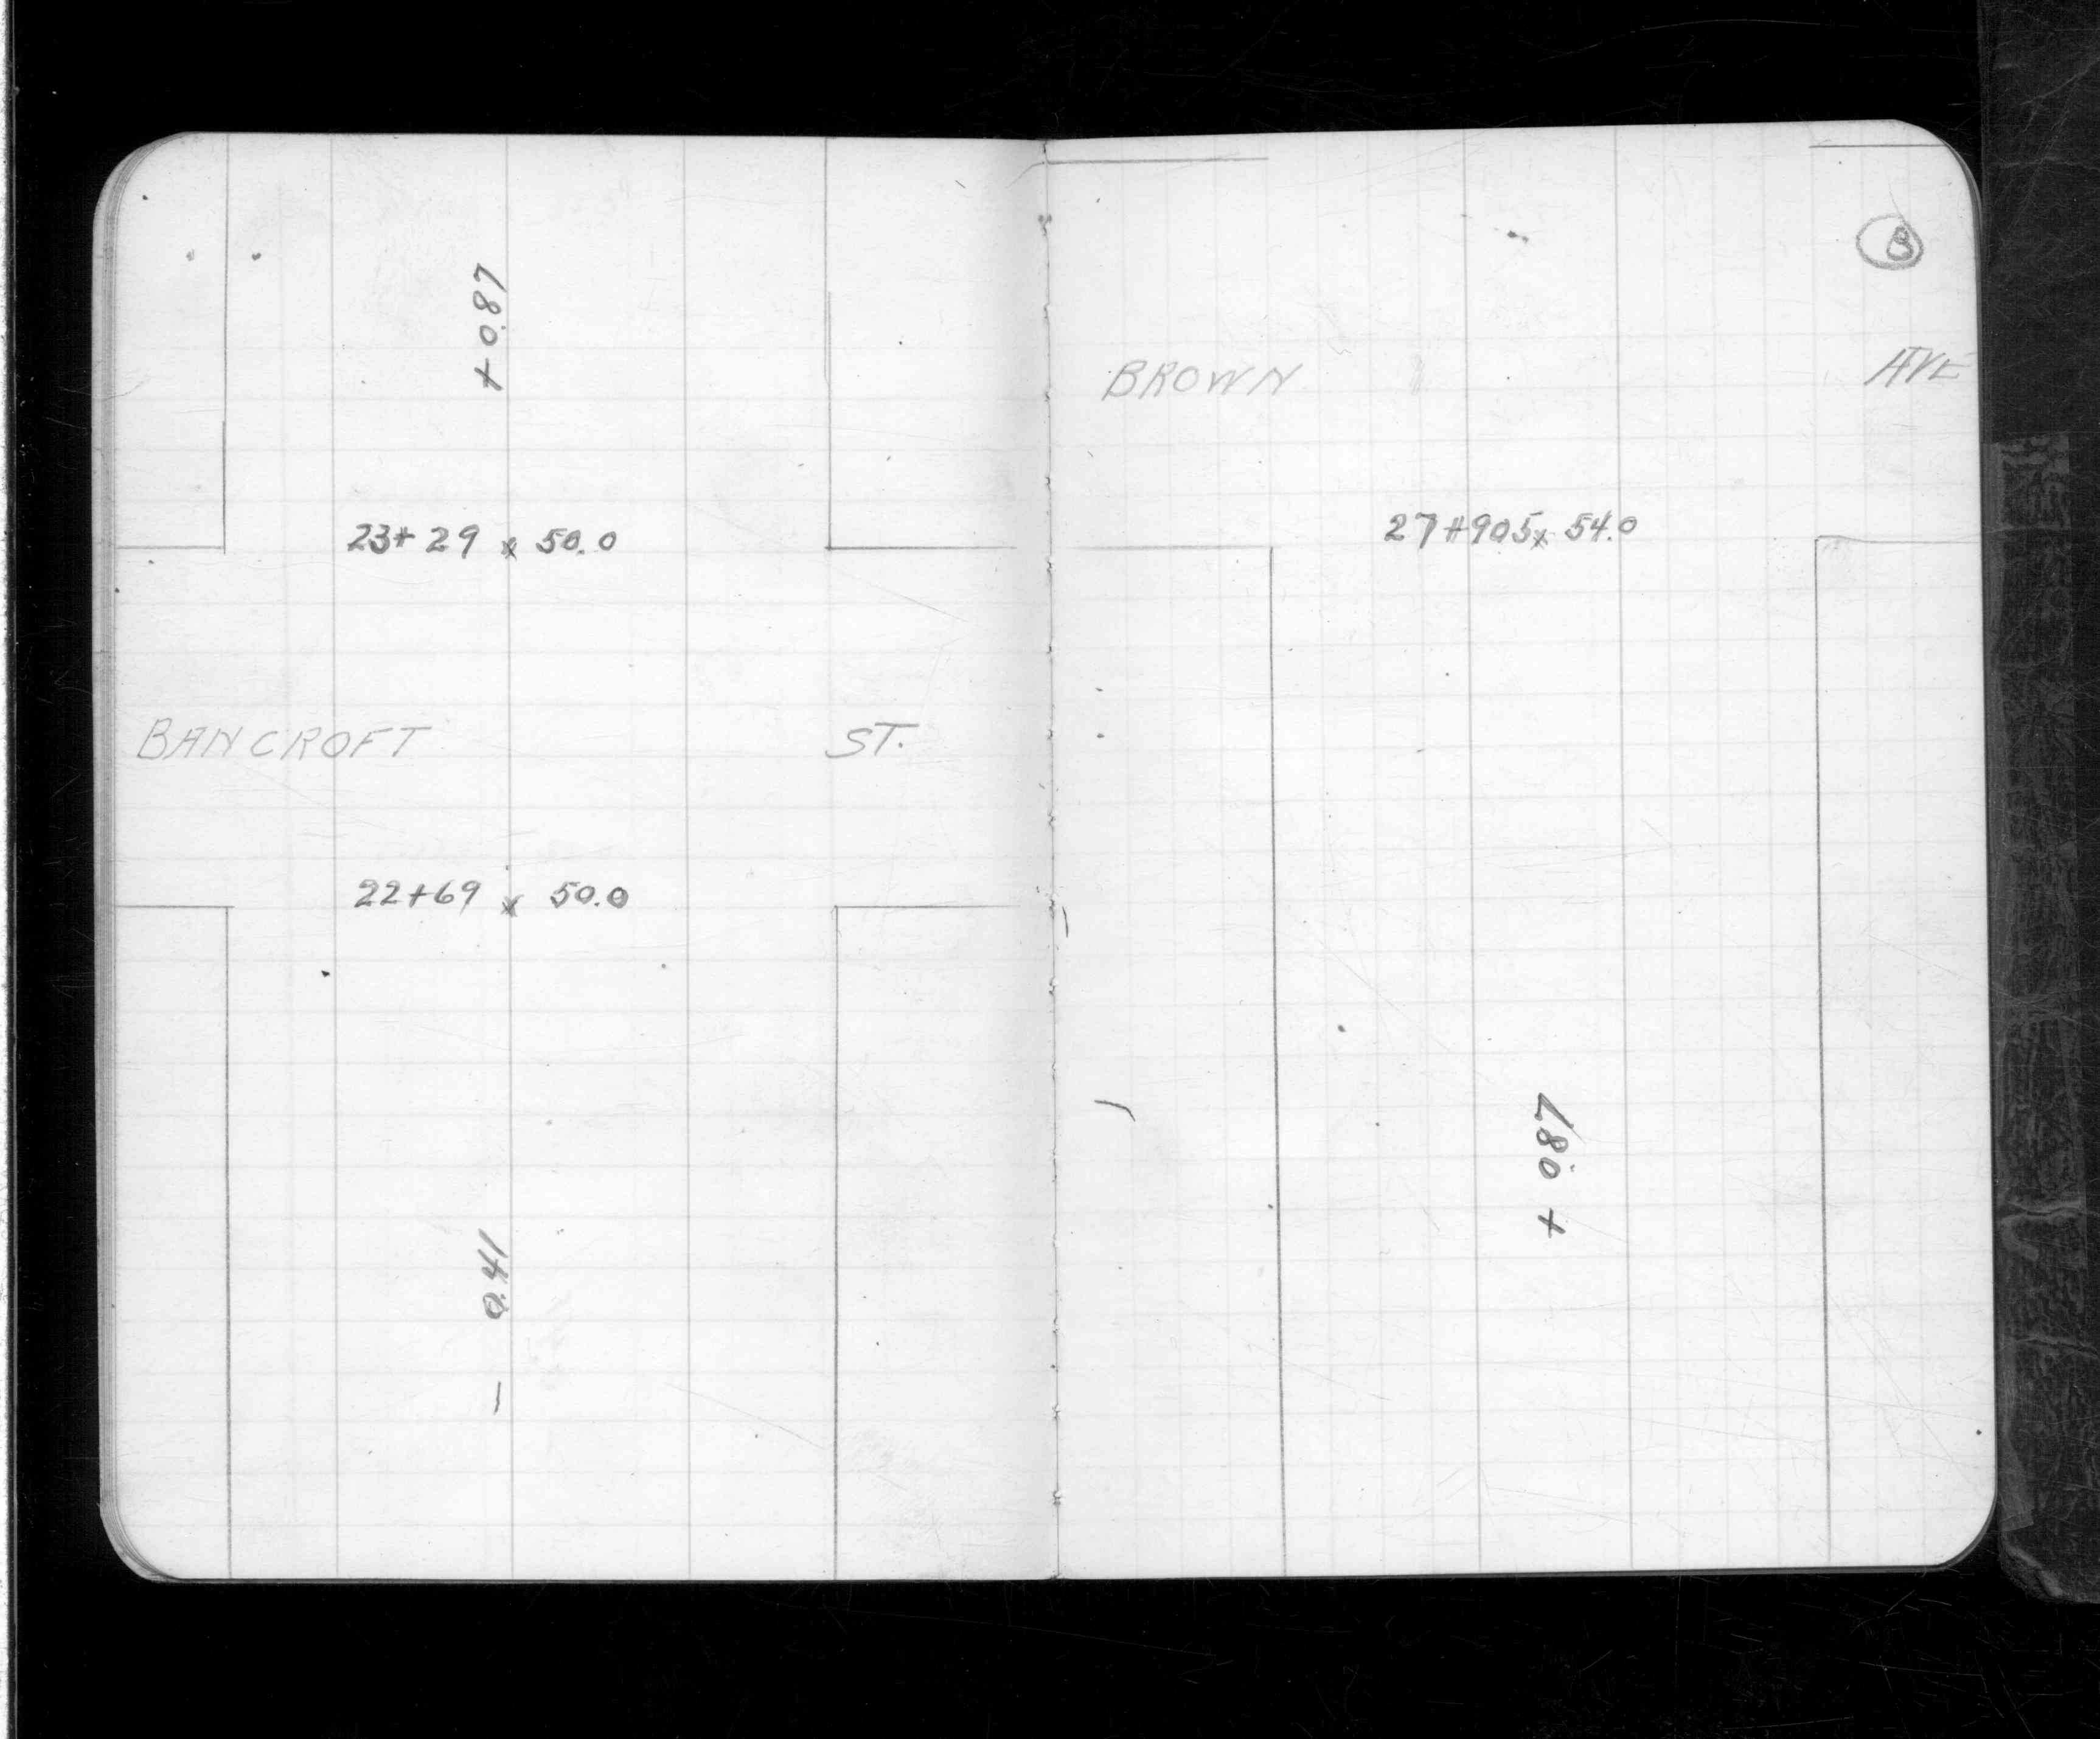 + 0.87
23+29 x 50.0
BANCROFT ST.
22+69 x 50.0
- 0.41
BROWN AVE
27+905x 54.0
+ 0.87